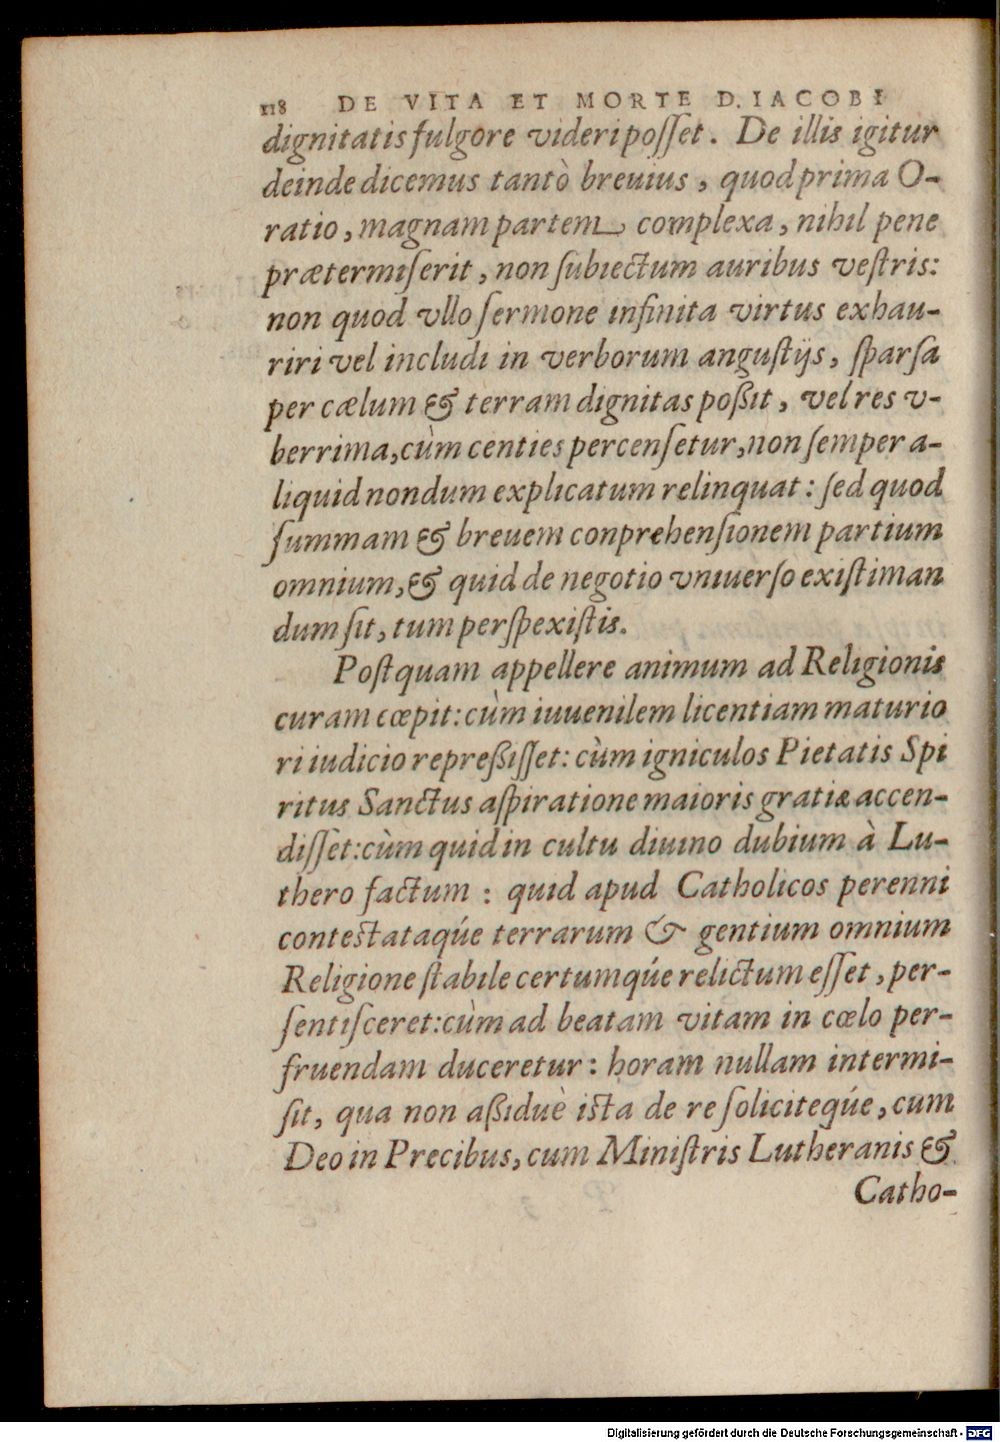 118 DE VITA ET MORTE D. IACOBI
dignitatis fulgore videri poſſet. De illis igitur
deinde dicemus tantò breuius, quod prima O-
ratio, magnam partem complexa, nihil pene
prætermiſerit, non ſubiectum auribus veſtris:
non quod vllo ſermone infinita virtus exhau-
riri vel includi in verborum anguſtijs, ſparſa
per cælum & terram dignitas poßit, vel res v-
berrima, cùm centies percenſetur, non ſemper a-
liquid nondum explicatum relinquat: ſed quod
ſummam & breuem conprehenſionem partium
omnium, & quid de negotio vniuerſo exiſtiman
dum ſit, tum perſpexiſtis.
Poſtquam appellere animum ad Religionis
curam cœpit: cùm iuuenilem licentiam maturio
ri iudicio repreßiſſet: cùm igniculos Pietatis Spi
ritus Sanctus aſpiratione maioris gratiæ accen-
diſſet: cùm quid in cultu diuino dubium à Lu-
thero factum: quid apud Catholicos perenni
contestataqúe terrarum & gentium omnium
Religione ſtabile certumqúe relictum eſſet, per-
ſentiſceret: cùm ad beatam vitam in cœlo per-
fruendam duceretur: horam nullam intermi-
ſit, qua non aßiduè ista de re ſoliciteqúe, cum
Deo in Precibus, cum Miniſtris Lutheranis &
Catho-
Digitalisierung gefördert durch die Deutsche Forschungsgemeinschaft - DFG